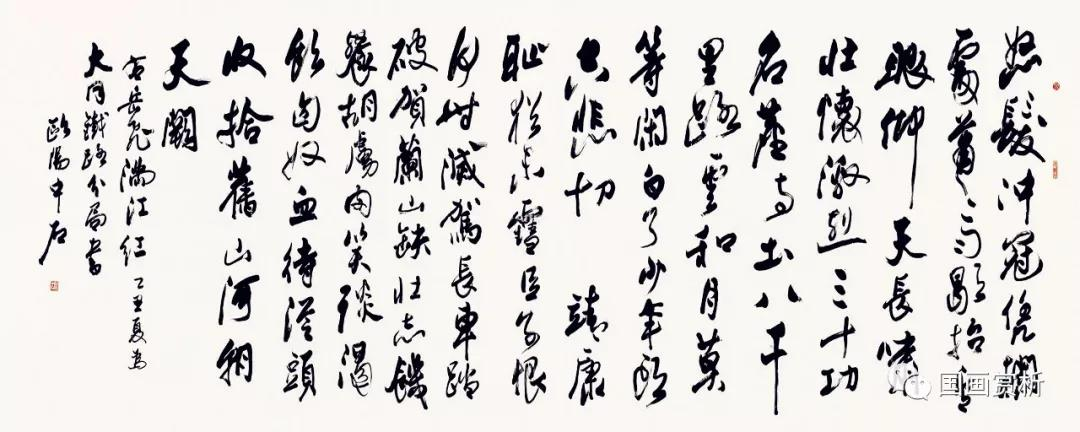 怒髮冲冠凭欄
處蕭〻雨歇抬望
眼仰天長嘯
壯懷激烈三十功
名塵与土八千
里路雲和月莫
等閑白了少年頭
空悲切 靖康
耻猶未雪臣子恨
何時滅駕長車踏
破賀蘭山缺壯志饑
餐胡虜肉笑談渴
飲匈奴血待從頭
收拾舊山河朝
天闕
右岳飛滿江紅 丁丑夏為
大同鐵路分局書
歐陽中石
国画赏析